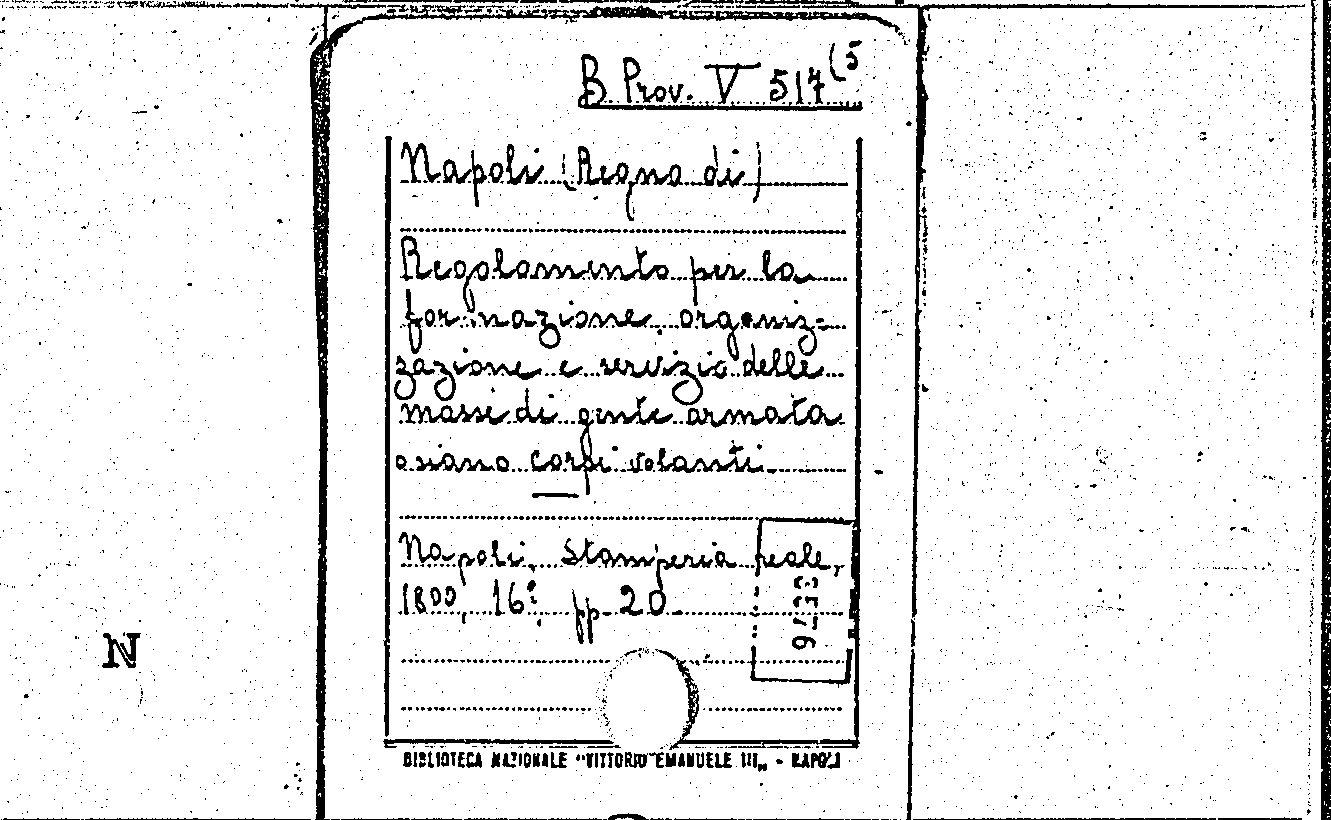 B. Prov. V 517(5
Napoli (Regno di)
Regolamento per la
formazione, organiz=
zazione e servizio delle
masse di gente armata
osiano corpi volanti.
Napoli, Stamperia reale,
1800, 16º, pp. 20.
N
BIBLIOTECA NAZIONALE "VITTORIO EMANUELE III„ - NAPOLI